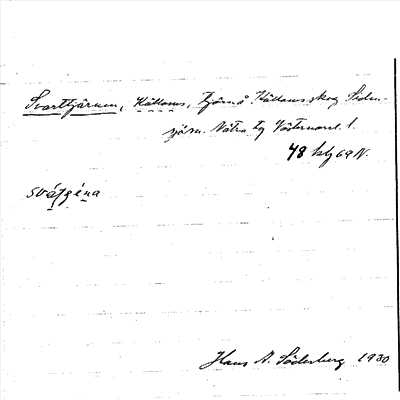 Svarttjärnen, Hällows, tjärn å Hällows skog Siden-
sjö sn. Nätra tg Västernorrl. l.
48 blg 69 N.
svátģéna
Hans A. Söderberg 1930